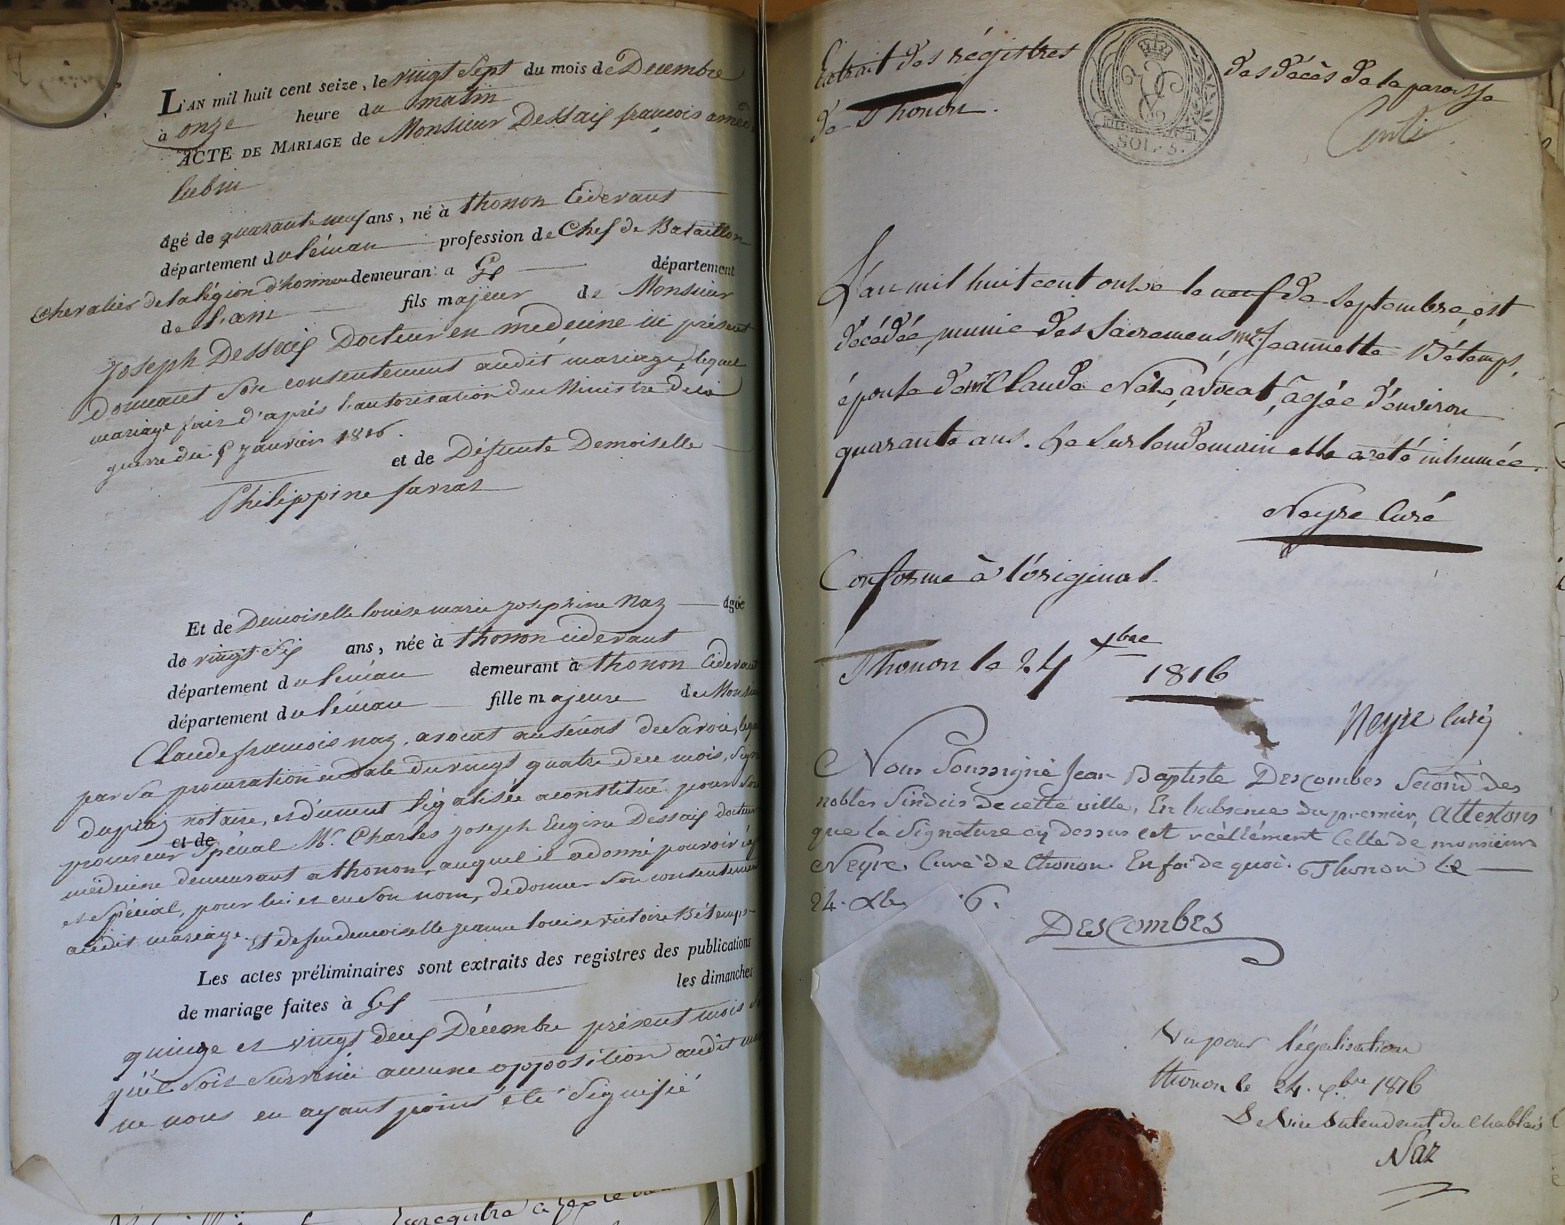 L'AN mil huit cent seize, le vingt sept du mois de Decembre
à onze heure du matin
ACTE DE MARIAGE de Monsieur Dessaix francois amed
lubin
âgé de quarante neuf ans, né à thonon Cidevant
département du léman profession de Chef de Bataillon
Chevalier de la légion d'honneur demeurant a Gex département
de l'ain fils majeur de Monsieur
Joseph Dessaix Docteur en medecine ici présent
Donnant son consentement audit mariage, lequel
mariage fait d'après l'autorisation du Ministre de la
guerre du 5 Janvier 1816.
et de Défunte Demoiselle
Philippine favrat
Et de Demoiselle louise marie josephine Naz âgée
de vingt six ans, née à thonon cidevant
département du léman demeurant à thonon Cidevant
département du léman fille majeure de Monsieur
Claude francois naz, avocat au sénat de Savoie, lequel
par sa procuration en date du vingt quatre de ce mois,
notaire, et dument légalisée a constitué pour son
et de
procureur spécial Mr. Charles joseph Eugène Dessaix docteur
médecine demeurant a thonon, auquel il a donné pouvoir
et spécial, pour lui et en son nom, de donner son consentement
audit mariage. et de feu demoiselle jeanne louise victoire Bétemps
Les actes préliminaires sont extraits des registres des publications
de mariage faites à Gex les dimanches
quinze et vingt deux Décembre présent mois
qu'il soit survenu aucune opposition audit
ne nous en ayant point été signifié
Extrait des régistres des décès de la paroisse
de Thonon.
SOL. 3.
L'an mil huit cent onze le neuf de Septembre, est
décédée, munie des Sacremens, me Jeannette Bétemps,
épouse de mr Claude Naz, avocat, agée d'environ
quarante ans. Le surlendemain elle a été inhumée.
Neyre Curé
Conforme à l'original.
Thonon le 24 xbre 1816
Neyre Curé
Nous Soussigné Jean Baptiste Descombes Second des
nobles Sindics de cette ville, En l'absence du premier, Attestons
que la Signature cy dessus est réellement Celle de monsieur
Neyre, Curé de thonon. En foi de quoi. Thonon le
24. xb 6.
DesCombes
Vu pour légalisation
thonon le 24. xbre 1816
Le Vice Intendant du Chablais
Naz